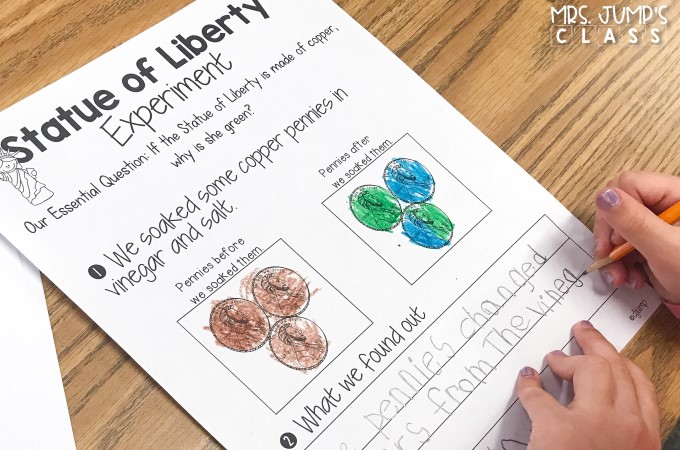 MRS. JUMP'S
CLASS
Statue of Liberty
Experiment
Our Essential Question: If the Statue of Liberty is made of copper,
why is she green?
1 We soaked some copper pennies in
vinegar and salt.
Pennies before
we soaked them
Pennies after
we soaked them
2 What we found out
pennies changed
from The vineg
©djump